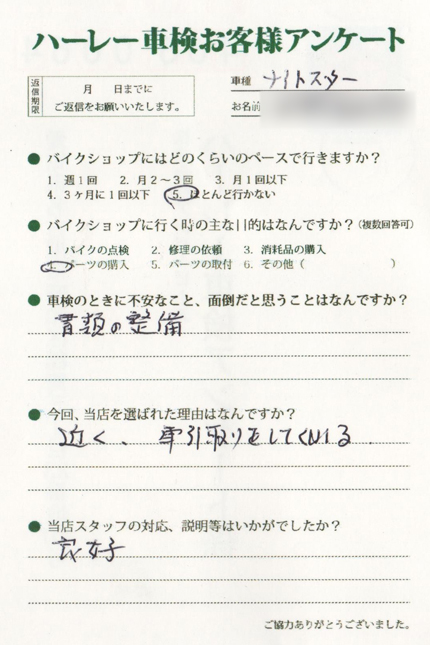 ハーレー車検お客様アンケート
返信期限
月 日までに
ご返信をお願いいたします。
車種 ナイトスター
お名前
● バイクショップにはどのくらいのペースで行きますか？
1. 週1回 2. 月2～3回 3. 月1回以下
4. 3ヶ月に1回以下 5. ほとんど行かない
● バイクショップに行く時の主な目的はなんですか？(複数回答可)
1. バイクの点検 2. 修理の依頼 3. 消耗品の購入
4. パーツの購入 5. パーツの取付 6. その他（ ）
● 車検のときに不安なこと、面倒だと思うことはなんですか？
書類の整備
● 今回、当店を選ばれた理由はなんですか？
近く、車引取りをしてくれる
● 当店スタッフの対応、説明等はいかがでしたか？
良好
ご協力ありがとうございました。